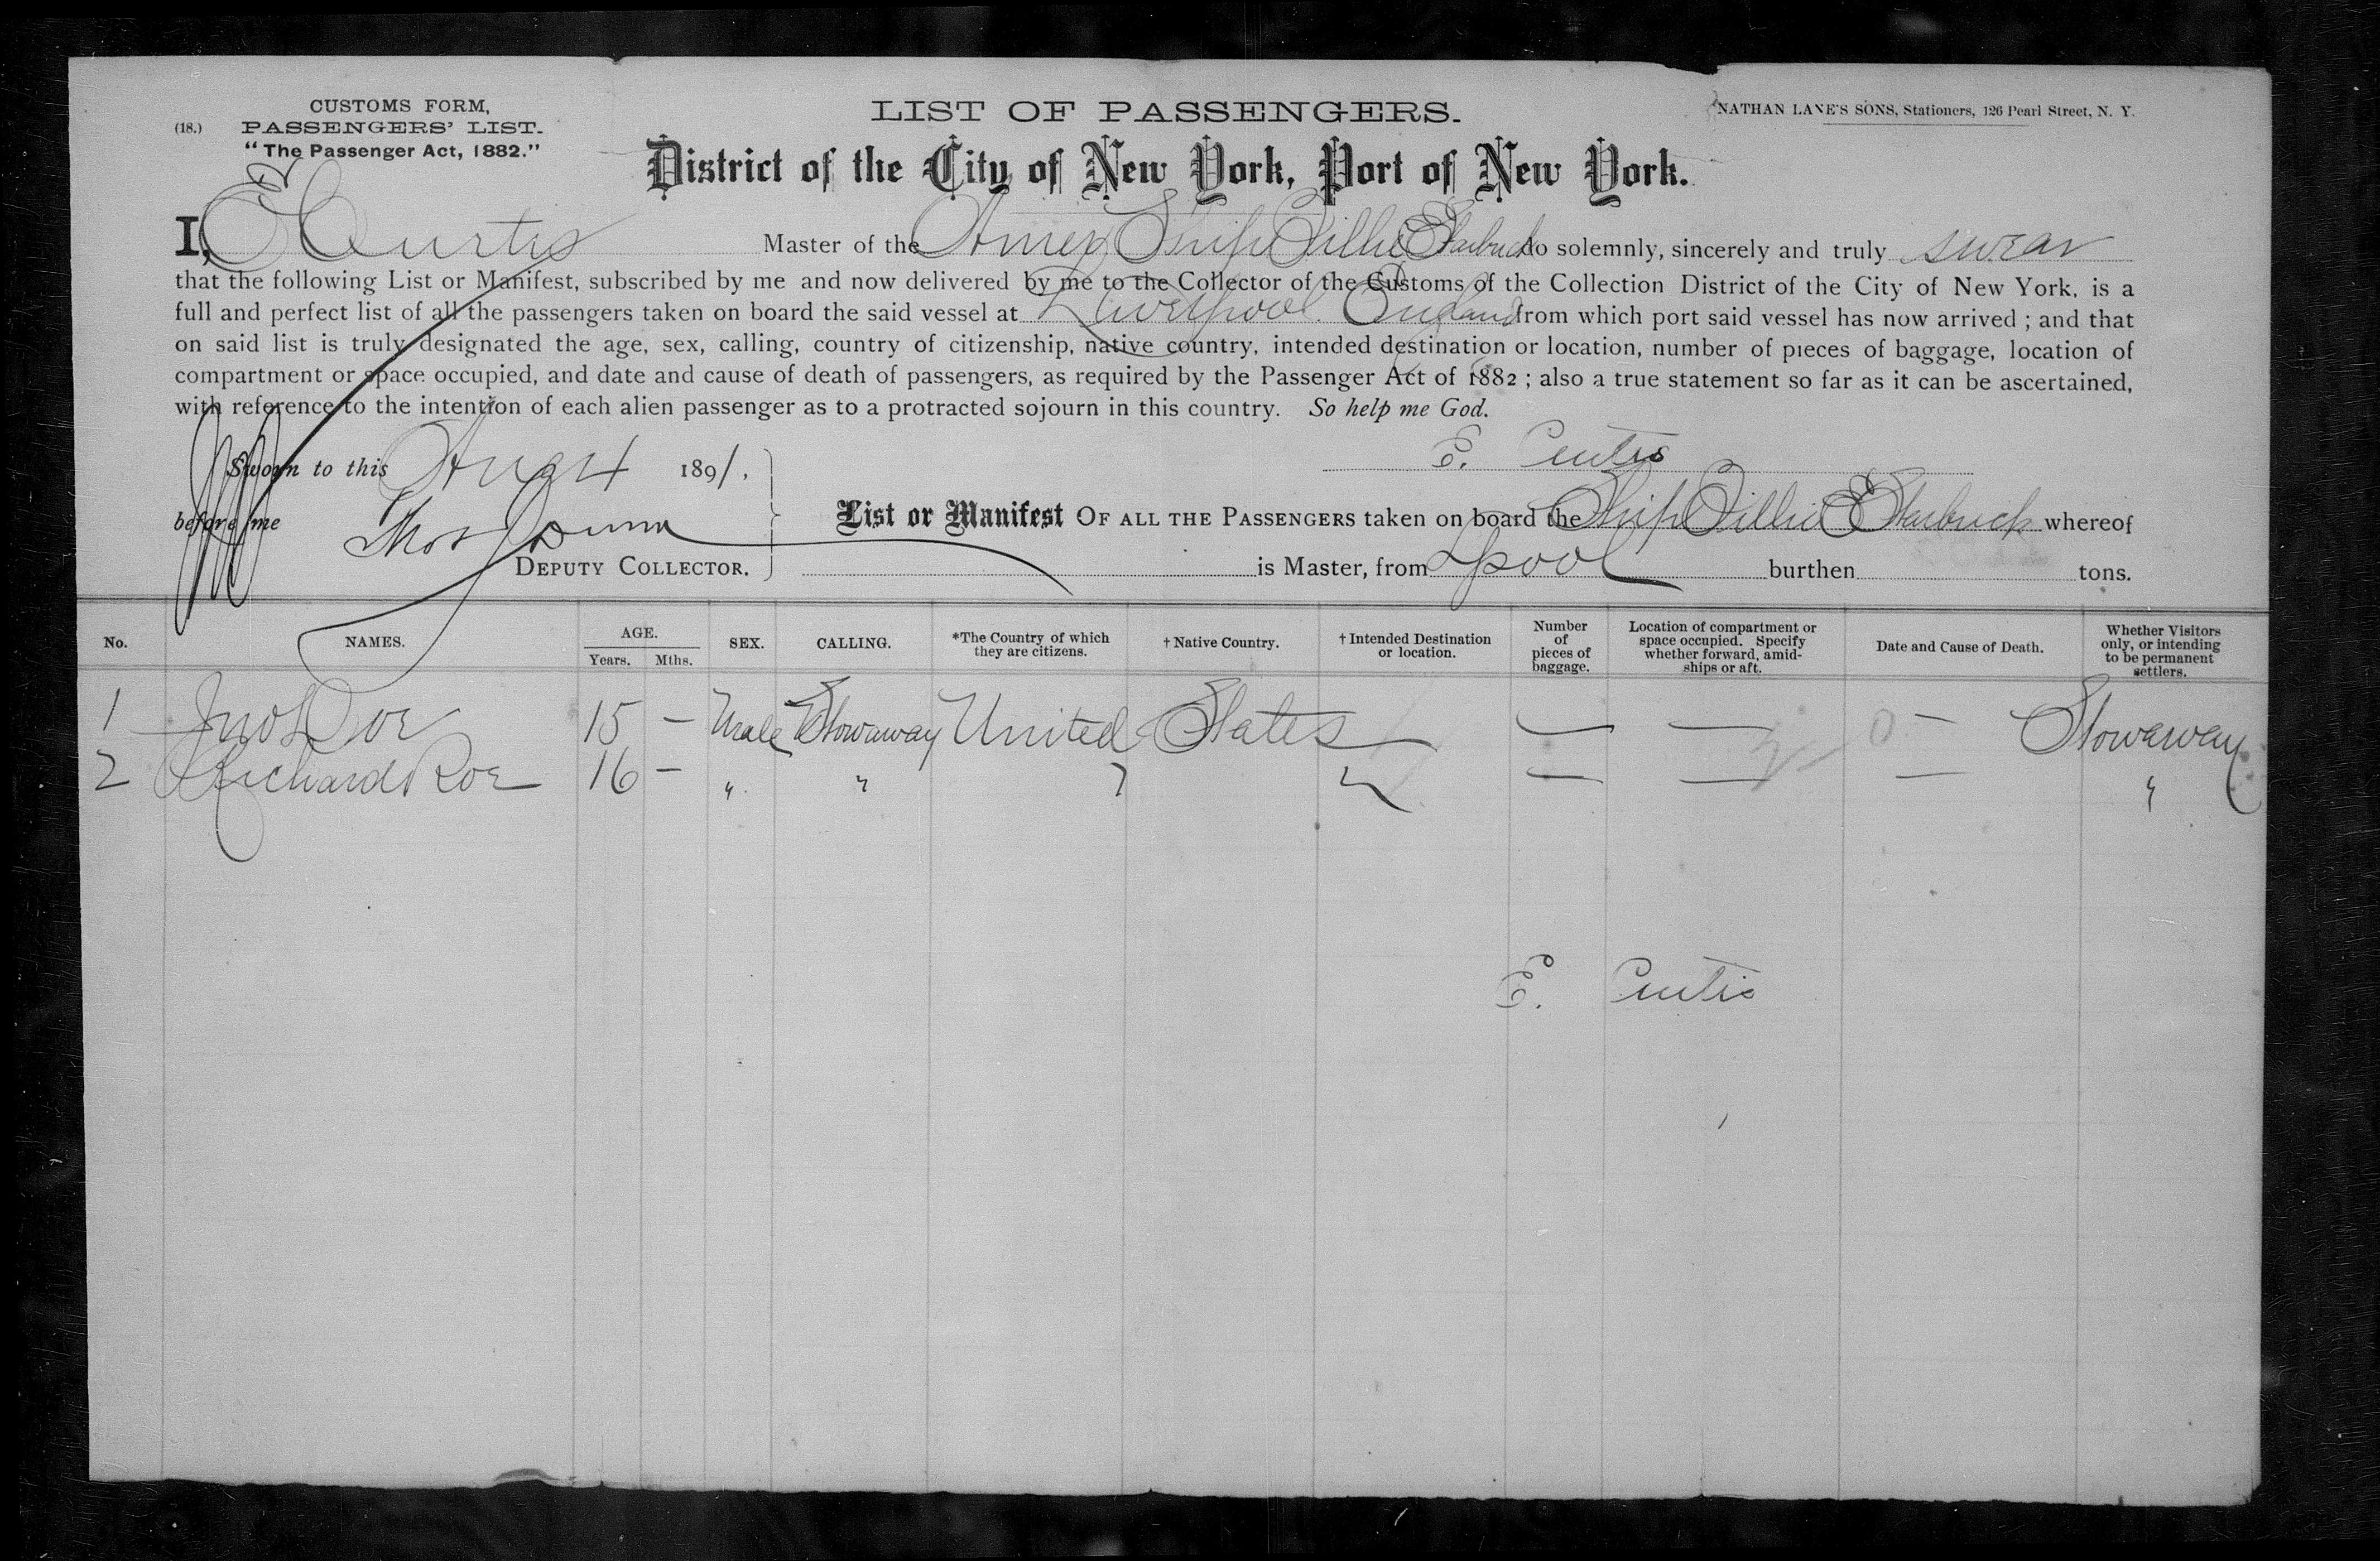 CUSTOMS FORM,
(18.) PASSENGERS' LIST.
"The Passenger Act, 1882."
LIST OF PASSENGERS.
NATHAN LANE'S SONS, Stationers, 126 Pearl Street, N. Y.
District of the City of New York, Port of New York.
I, E Curtis Master of the Amer Ship Tillie E Starbuck do solemnly, sincerely and truly swear
that the following List or Manifest, subscribed by me and now delivered by me to the Collector of the Customs of the Collection District of the City of New York, is a
full and perfect list of all the passengers taken on board the said vessel at Liverpool England from which port said vessel has now arrived ; and that
on said list is truly designated the age, sex, calling, country of citizenship, native country, intended destination or location, number of pieces of baggage, location of
compartment or space occupied, and date and cause of death of passengers, as required by the Passenger Act of 1882 ; also a true statement so far as it can be ascertained,
with reference to the intention of each alien passenger as to a protracted sojourn in this country. So help me God.
E. Curtis
Sworn to this Aug 4 1891.
before me Thos Dunn
DEPUTY COLLECTOR.
List or Manifest OF ALL THE PASSENGERS taken on board the Ship Tillie E Starbuck whereof
is Master, from Lpool burthen tons.
No. NAMES. AGE. Years. Mths. SEX. CALLING. *The Country of which they are citizens. † Native Country. † Intended Destination or location. Number of pieces of baggage. Location of compartment or space occupied. Specify whether forward, amidships or aft. Date and Cause of Death. Whether Visitors only, or intending to be permanent settlers.
1 Jno Doe 15 — Male Stowaway United States — — — Stowaway
2 Richard Roe 16 — " " " " — — — "
E. Curtis